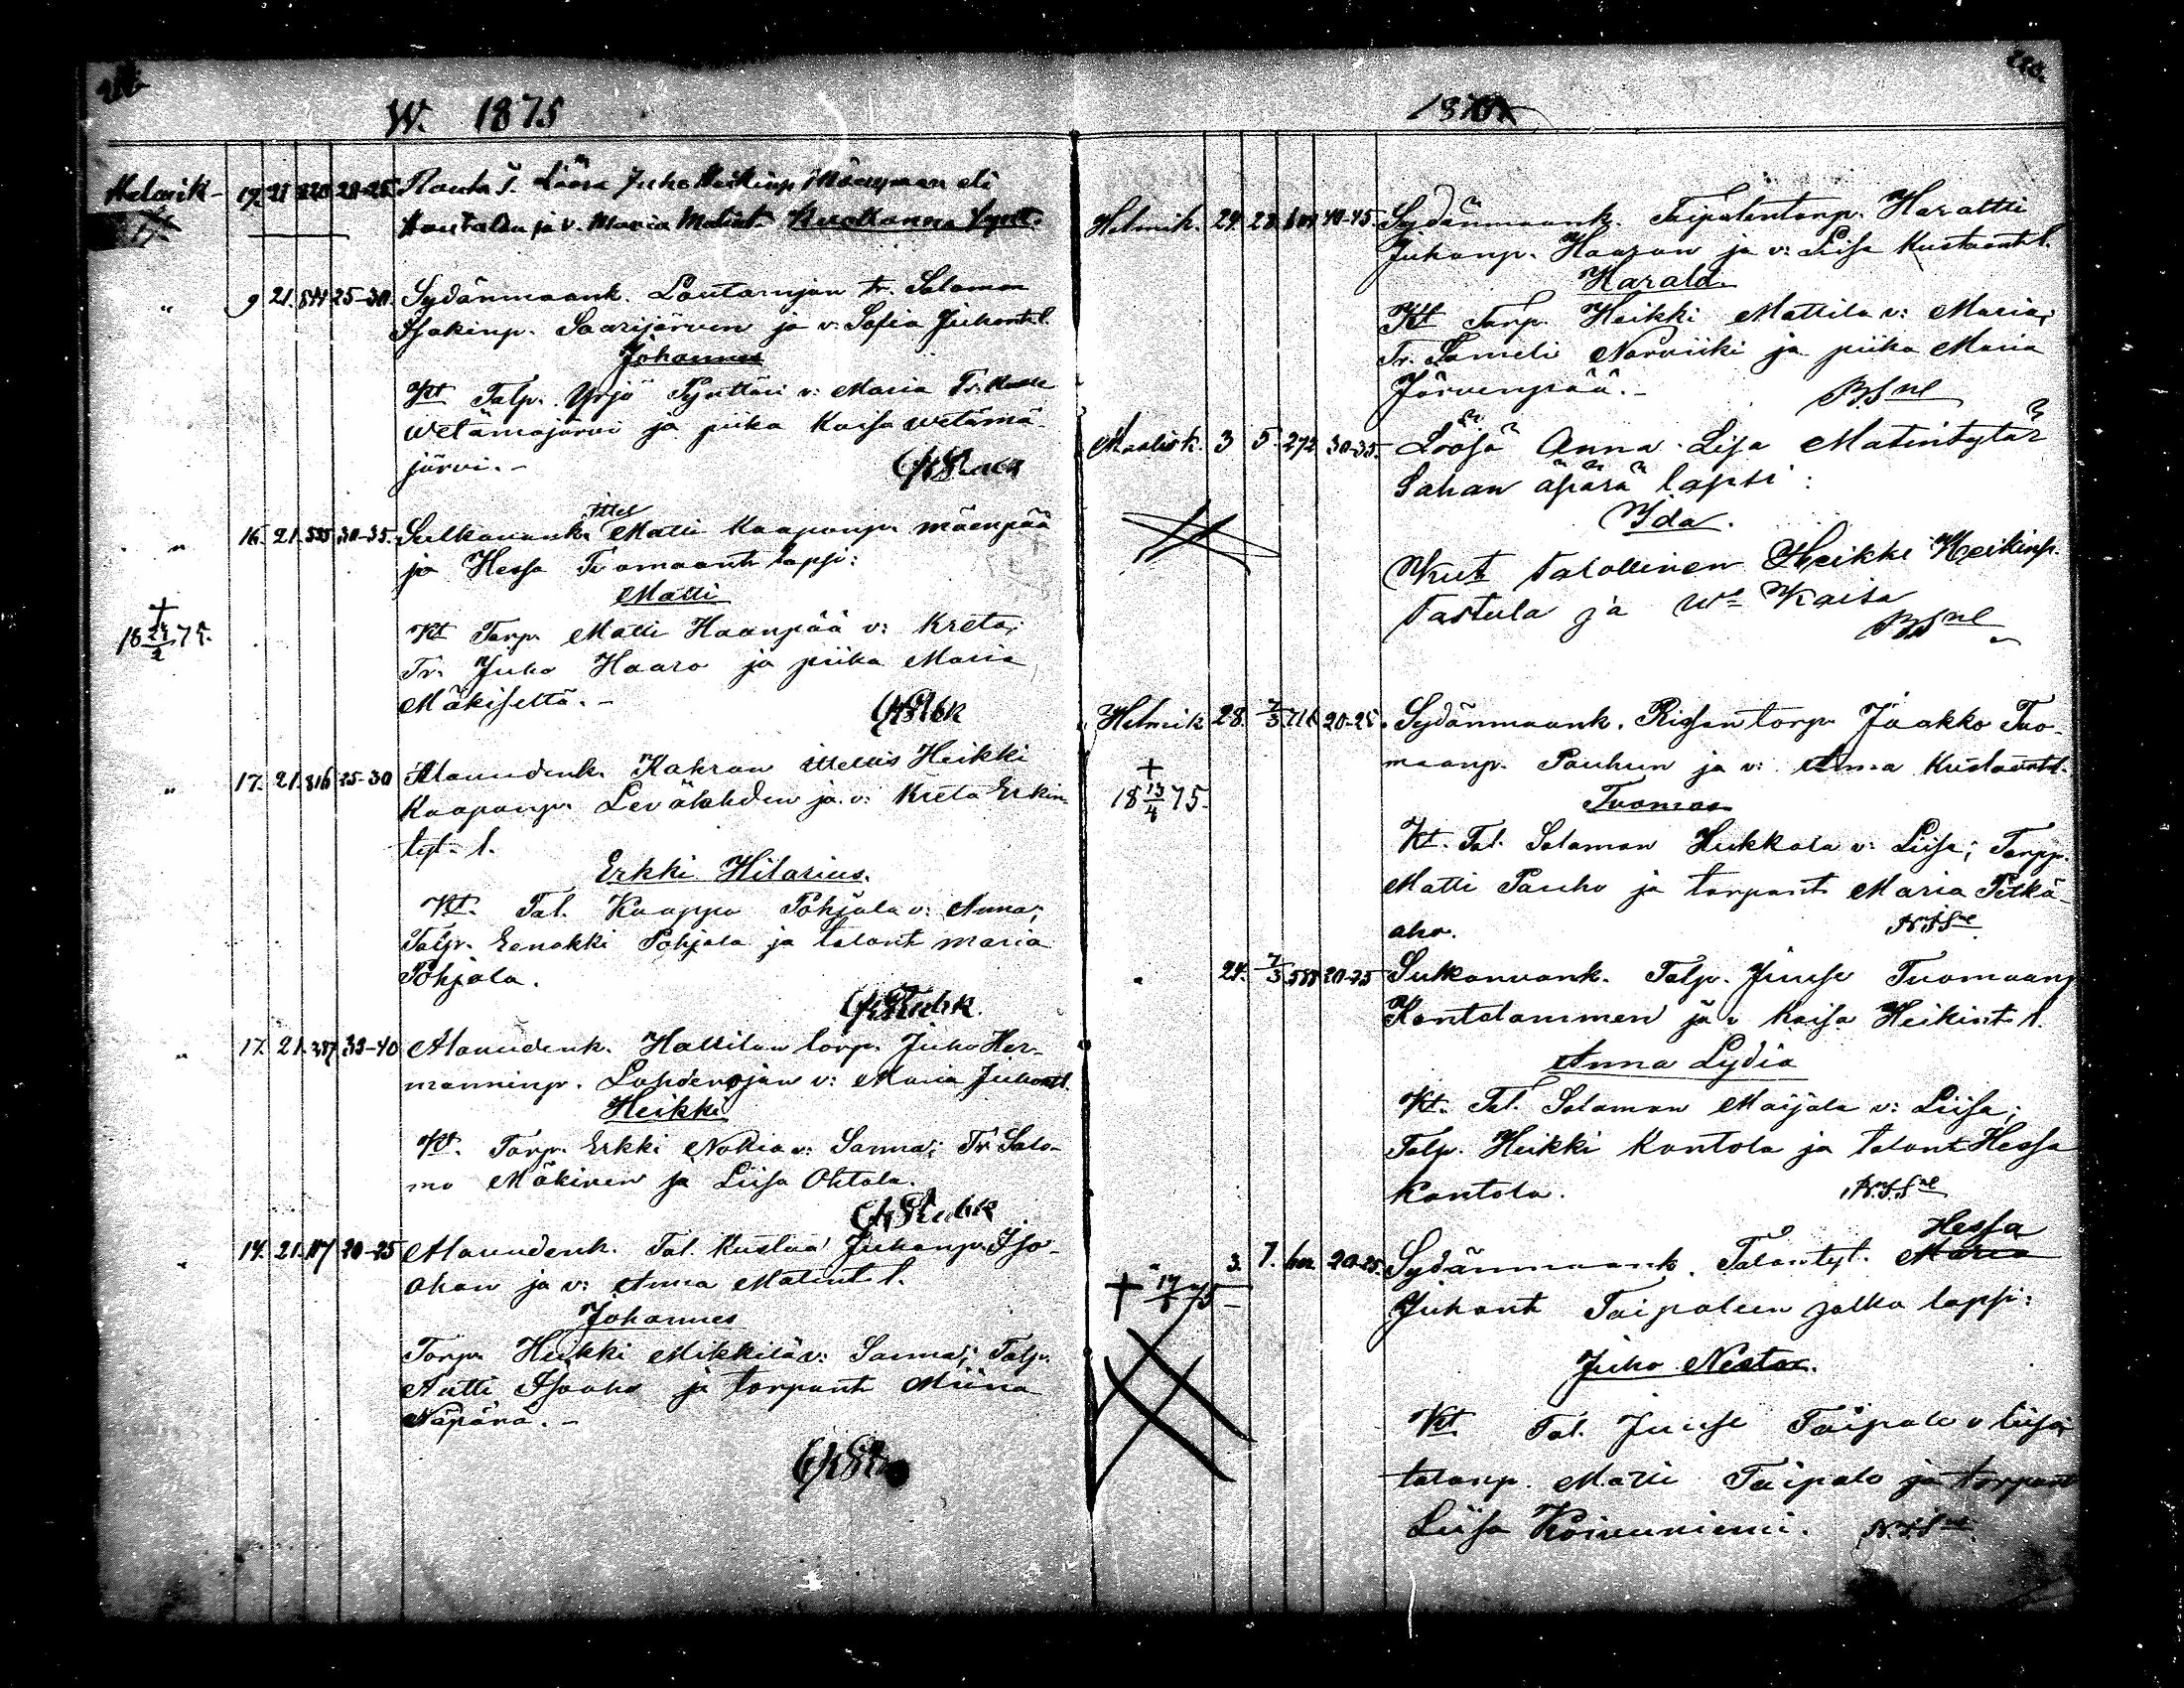 W. 1875
Helmik- 17. 21 220 20-25 Rauta S. Lääsa Juho Heikinp. eli
ja v. Maria Matint. Kuolleena synt.
" 9 21. 544 25-30. Sydänmaank. Lautarnjan tr. Salamon
Isakinp. Saarijärven ja v: Sofia Juhont l.
Johannes
Kt Talp. Yrjö Pynttäri v: Maria Tr.
Wetämäjärvi ja piika Kaisa Wetämä-
järvi. -
" 16. 21. 535 30-35. Sulkavank. ittel Matti Kaaponp. Mäenpää
ja Hessa Tuomaant lapsi:
Matti
+ 18 24/2 75.
Kt Torp. Matti Haanpää v: Kreta;
Tr. Juho Haaro ja piika Maria
Mäkiseltä. -
" 17. 21. 816 25-30 Alavudenk. Kahran ittellis Heikki
Kaaponp. Levälahden ja v: Kreta Erkin
tyt. l.
Erkki Hilarius.
Kt. Tal. Kaappo Pohjala v: Anna;
Talp. Eenokki Pohjala ja talont Maria
Pohjala.
" 17. 21. 387 35-40 Alavudenk. Hallilan torp. Juho Her-
manninp. Lahdenojan v: Maria Juhont l.
Heikki
Kt. Torp. Erkki Nokia v: Sanna; Tr. Salo-
mo Mäkinen ja Liisa Ohtola.
" 14. 21. 117 20-25 Alavudenk. Tal. Kustaa Juhanp. Iso-
ahon ja v: Anna Matint l.
Johannes
Torp. Heikki Mikkilä v: Sanna; Talp.
Antti Isoaho ja torpant Miina
Näpärä. -
187
Helmik. 24. 28. 604 40-45. Sydänmaank. Taipalentorp. Haraltti
Juhanp. Haapan ja v: Liisa Kustaant l.
Harald.
Kt Torp. Heikki Mattila v: Maria;
Tr. Sameli Norviiki ja piika Maria
Järvenpää. -
Maalisk. 3 5. 272 30-35. Löösä Anna Lisa Matintytär
Sahan äpärä lapsi:
Ida.
Kut talollinen Heikki Heikinp.
Tastula ja Wo Kaisa
Helmik 28. 7/3 716 20-25. Sydänmaank. Rissantorp. Jaakko Tuo-
maanp. Pauhun ja v: Anna Kustaant l.
Tuomas
+ 18 13/4 75.
Kt. Tal. Salamon Hukkala v: Liisa; Torpp.
Matti Pauho ja torpant Maria Pitkä-
aho.
" 24. 7/3 588 20-25 Sulkavank. Talp. Juuse Tuomaanp
Kontolammen ja v Kaisa Heikint l.
Anna Lydia
Kt. Tal. Salamon Maijala v: Liisa;
Talp. Heikki Kantola ja talont Hessa
Kantola.
Hessa
" 3. 7. 20-25. Sydänmaank. Talontyt. Maria
Juhont Taipaleen jalka lapsi:
Juho Nestor.
Kt Tal. Juuse Taipale v Liisa;
talonp. Matti Taipale ja torpant
Liisa Koivuniemi.